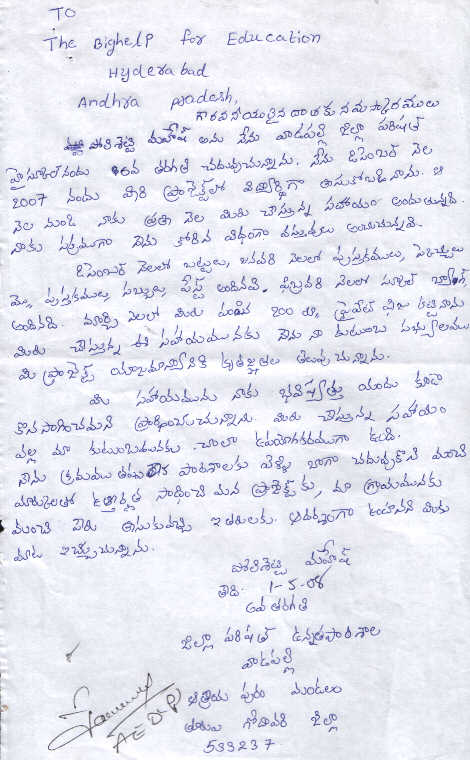 TO
The Bighelp for Education
Hyderabad
Andhra pradesh,
గౌరవనీయులైన దాతకు నమస్కారములు
పోలిశెట్టి మహేష్ అను నేను వాడపల్లి జిల్లా పరిషత్
హైస్కూల్ నందు 6వ తరగతి చదువుచున్నాను. నేను డిసెంబర్ నెల
2007 నందు మీరి ప్రాజెక్ట్‌లో విద్యార్థిగా తీసుకోబడినాను. ఆ
నెల నుండి నాకు ప్రతి నెల మీరు చేస్తున్న సహాయం అందుతున్నది.
నాకు సక్రమంగా నేను కోరిన విధంగా వస్తువులు అందుచున్నవి.
డిసెంబర్ నెలలో బట్టలు, జనవరి నెలలో పుస్తకములు, పెన్నులు
పుస్తకములు, సబ్బులు, పేస్ట్ అందినవి. ఫిబ్రవరి నెలలో స్కూల్ బ్యాగ్
అందినది. మార్చి నెలలో మీరు 200 రూ, ప్రైవేట్ ఫీజు కట్టినారు
మీరు చేస్తున్న ఈ సహాయమునకు నేను నా కుటుంబ సభ్యులము
మీ ప్రాజెక్ట్ యాజమాన్యానికి కృతజ్ఞతలు తెలుపుచున్నాను.
మీ సహాయమును నాకు భవిష్యత్తు యందు కూడా
కొనసాగించమని ప్రార్థించుచున్నాను. మీరు చేస్తున్న సహాయం
వల్ల మా కుటుంబమునకు చాలా ఉపయోగకరముగా ఉంది.
నేను క్రమము తప్పకుండా పాఠశాలకు వెళ్ళి బాగా చదువుకొని మంచి
మార్కులతో ఉత్తీర్ణత సాధించి మన ప్రాజెక్ట్ కు, మా గ్రామమునకు
మంచి పేరు తీసుకువచ్చి ఇతరులకు ఆదర్శంగా ఉంటానని మీకు
మాట ఇచ్చుచున్నాను.
పోలిశెట్టి మహేష్
తేది. 1-5-08
6వ తరగతి
జిల్లా పరిషత్ ఉన్నత పాఠశాల
వాడపల్లి
ఆత్రేయ పురం మండలం
తూర్పు గోదావరి జిల్లా
533237.